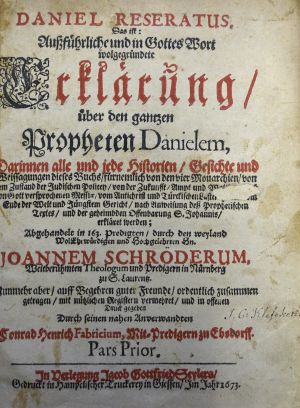 DANIEL RESERATUS.
Das ist:
Außführliche und in Gottes Wort
wolgegründete
Erklärung/
über den gantzen
Propheten Danielem,
Darinnen alle und jede Historien/ Gesichte und
Weissagungen dieses Buchs/ fürnemlich von den vier Monarchien/ von
dem Zustand der Jüdischen Policey/ von der Zukunfft/ Ampt und
von Gott versprochenen Messiæ/ vom Antichrist und Türckischen
Ende der Welt und Jüngstem Gericht/ nach Anweisung des Prophetischen
Textes/ und der geheimbden Offenbarung S. Johannis/
erkläret werden;
Abgehandelt in 163. Predigten/ durch den weyland
WolEhrwürdigen und Hochgelehrten Hn.
JOANNEM SCHRÖDERUM,
Weitberühmten Theologum und Predigern in Nürnberg
zu S. Laurentz.
Nunmehr aber/ auff Begehren guter Freunde/ ordentlich zusammen
getragen/ mit nützlichen Registern vermehret/ und in offenen
Druck gegeben
Durch seinen nahen Anverwandten
Conrad Henrich Fabricium, Mit-Predigern zu Ebsdorff.
Pars Prior.
In Verlegung Jacob Gottfried Seylers/
Gedruckt in Hampelischer Truckerey in Giessen/ Im Jahr 1673.